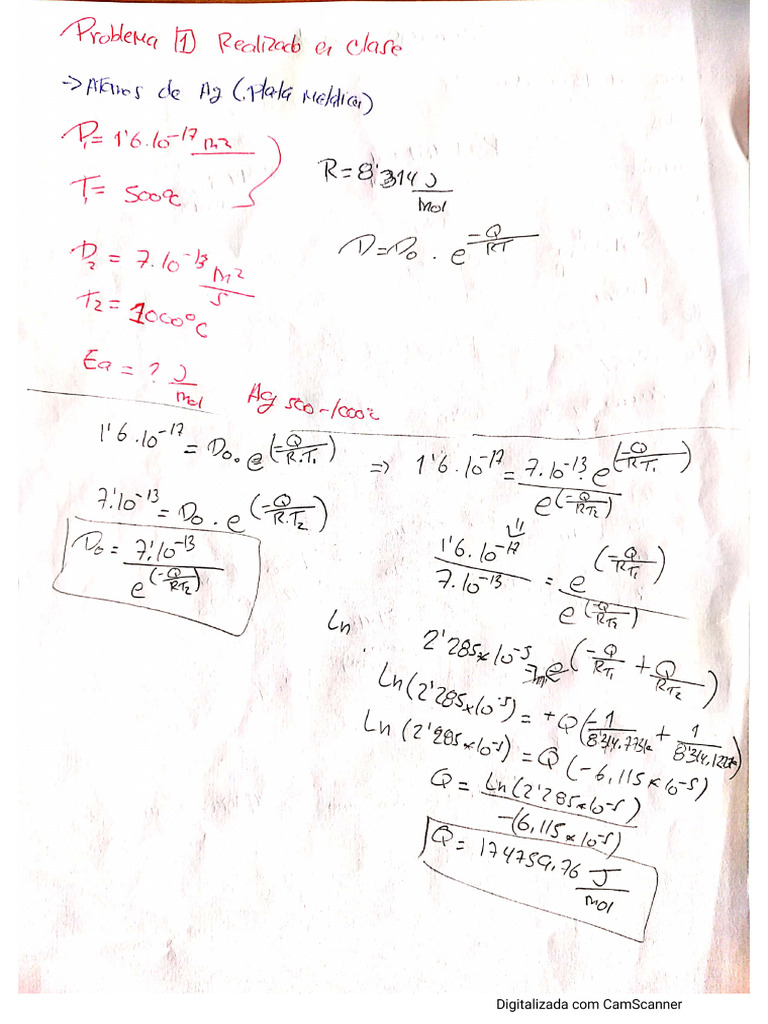 Problema 1 Realizado en clase
→ Átomos de Ag (plata metálica)
D₁= 1'6.10⁻¹⁷ m²
T₁= 500ºc
R = 8'314 J/mol
D=D₀ . e^(-Q/RT)
D₂ = 7.10⁻¹³ m²/s
T₂ = 1000ºC
Ea = ? J/mol
Ag 500-1000ºc
1'6.10⁻¹⁷ = D₀. e^(-Q/R.T₁)
7'10⁻¹³ = D₀ . e^(-Q/R.T₂)
D₀ = 7'.10⁻¹³/e^(-Q/RT₂)
=> 1'6.10⁻¹⁷ = 7.10⁻¹³. e^(-Q/RT₁)/e^(-Q/RT₂)
1'6.10⁻¹⁷/7.10⁻¹³ = e^(-Q/RT₁)/e^(-Q/RT₂)
Ln
2'285x10⁻⁵ = e^(-Q/RT₁ + Q/RT₂)
Ln(2'285x10⁻⁵) = +Q(-1/8'314.773k + 1/8'314.1273k)
Ln(2'285x10⁻⁵) = Q(-6,115x10⁻⁵)
Q = Ln(2'285x10⁻⁵)/-(6,115x10⁻⁵)
Q = 174759,76 J/mol
Digitalizada com CamScanner